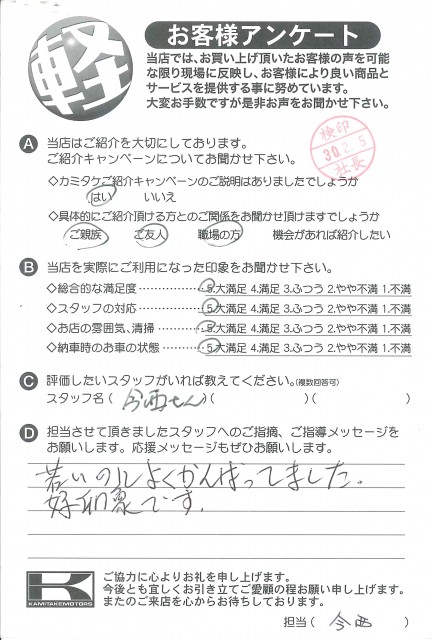 軽
お客様アンケート
当店では、お買い上げ頂いたお客様の声を可能
な限り現場に反映し、お客様により良い商品と
サービスを提供する事に努めています。
大変お手数ですが是非お声をお聞かせ下さい。
検印
30.2.5
社長
A 当店はご紹介を大切にしてあります。
ご紹介キャンペーンについてお聞かせ下さい。
◇カミタケご紹介キャンペーンのご説明はありましたでしょうか
はい いいえ
◇具体的にご紹介頂ける方とのご関係をお聞かせ頂けますでしょうか
ご親族 ご友人 職場の方 機会があれば紹介したい
B 当店を実際にご利用になった印象をお聞かせ下さい。
◇総合的な満足度 5.大満足 4.満足 3.ふつう 2.やや不満 1.不満
◇スタッフの対応 5.大満足 4.満足 3.ふつう 2.やや不満 1.不満
◇お店の雰囲気、清掃 5.大満足 4.満足 3.ふつう 2.やや不満 1.不満
◇納車時のお車の状態 5.大満足 4.満足 3.ふつう 2.やや不満 1.不満
C 評価したいスタッフがいれば教えてください。(複数回答可)
スタッフ名 ( 今西さん )( )( )
D 担当させて頂きましたスタッフへのご指摘、ご指導メッセージを
お願いします。応援メッセージもぜひお願いします。
若いのによくがんばってました.
好印象です.
K
KAMITAKEMOTORS
ご協力に心よりお礼を申し上げます。
今後とも宜しくお引き立てご愛顧の程お願い申し上げます。
またのご来店を心からお待ちしております。
担当 ( 今西 )